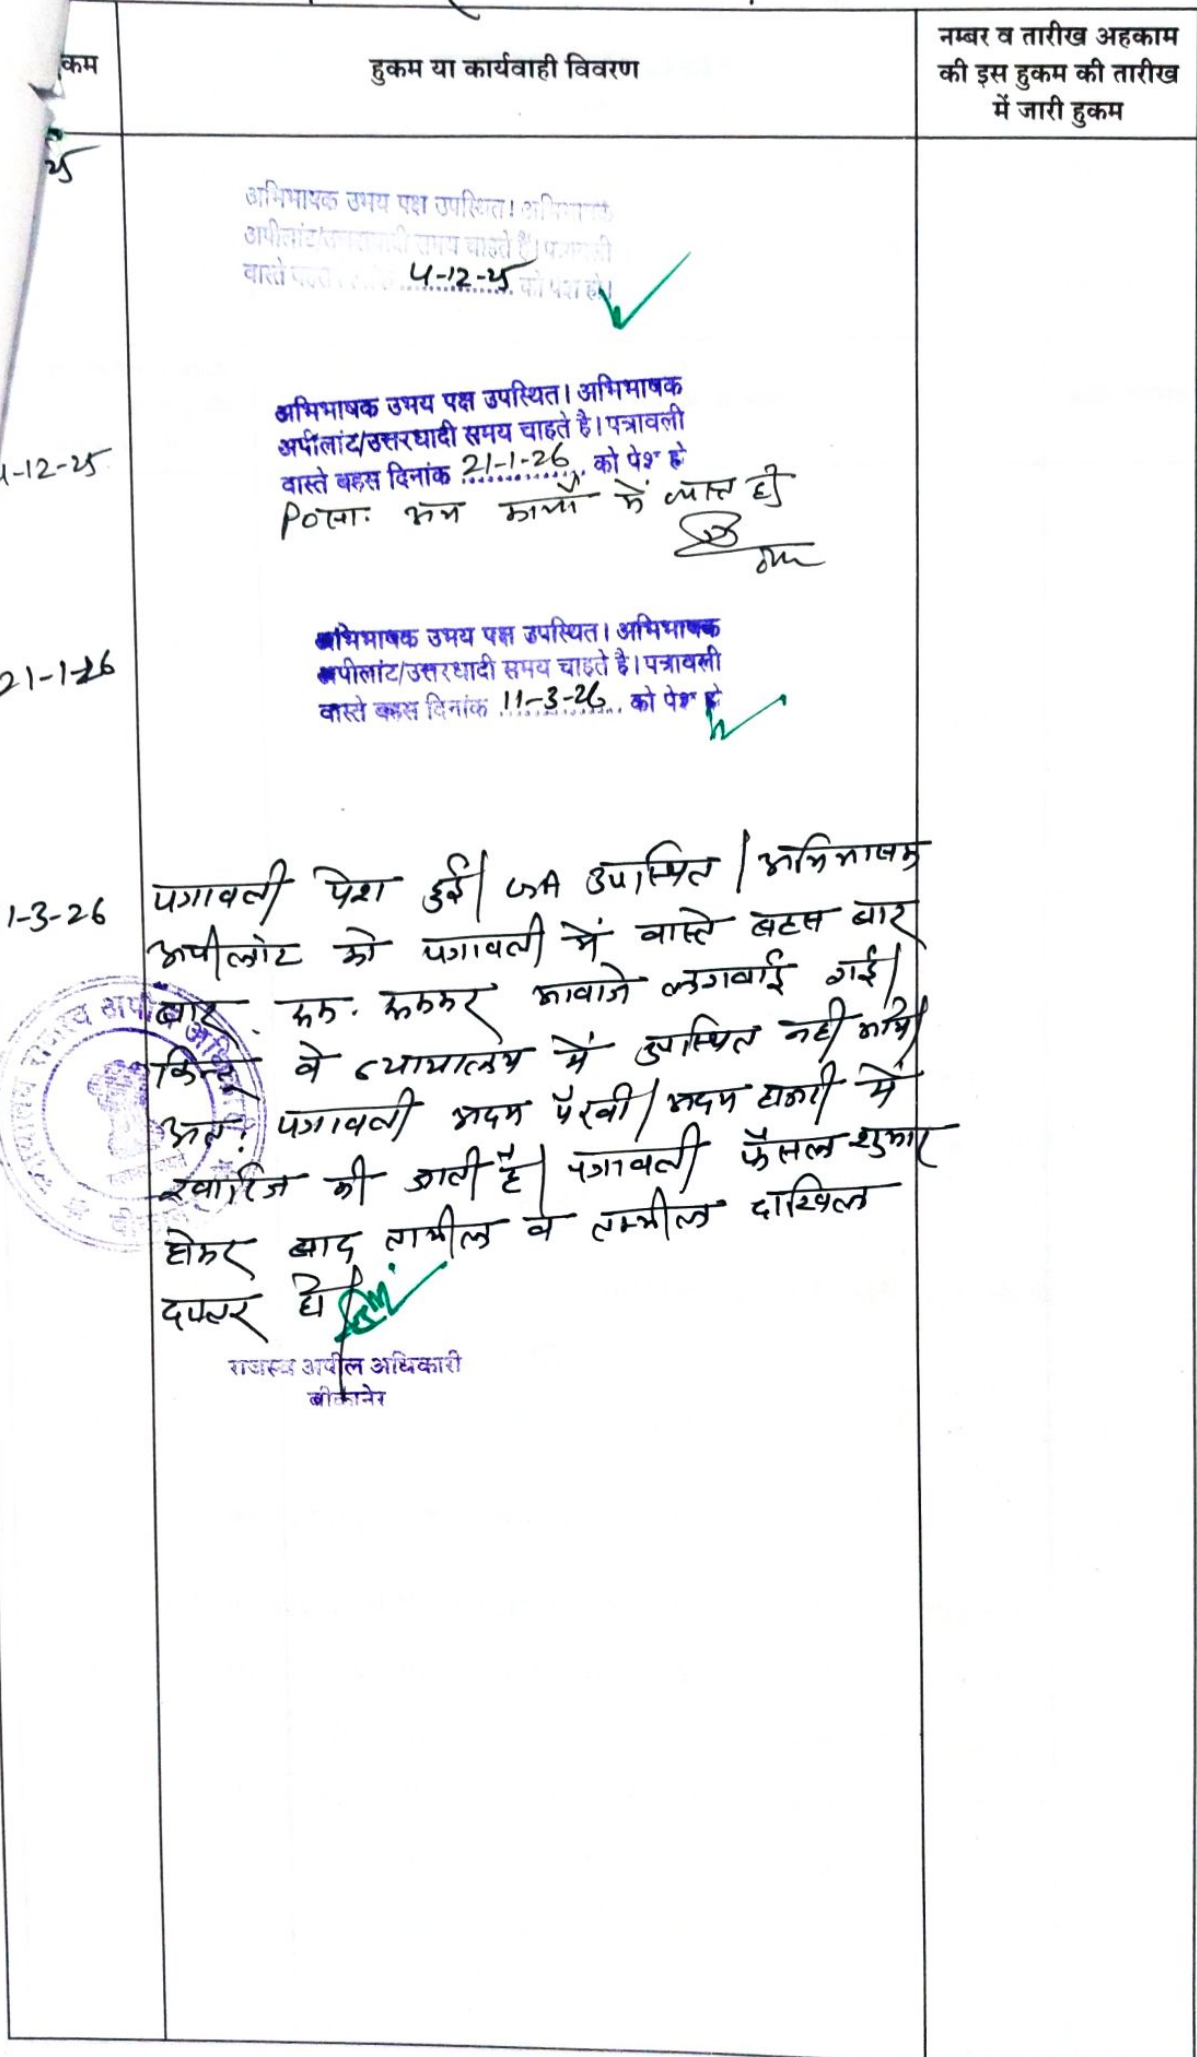 कम
हुकम या कार्यवाही विवरण
नम्बर व तारीख अहकाम
की इस हुकम की तारीख
में जारी हुकम
अभिभाषक उभय पक्ष उपस्थित। अभिभाषक
अपीलांट/उत्तरवादी समय चाहते हैं। पत्रावली
वास्ते बहस 4-12-25 को पेश हो।
4-12-25
अभिभाषक उभय पक्ष उपस्थित। अभिभाषक
अपीलांट/उत्तरवादी समय चाहते है। पत्रावली
वास्ते बहस दिनांक 21-1-26 को पेश हो
अन्य कार्यों में व्यस्त है।
21-1-26
अभिभाषक उभय पक्ष उपस्थित। अभिभाषक
अपीलांट/उत्तरवादी समय चाहते है। पत्रावली
वास्ते बहस दिनांक 11-3-26 को पेश हो
1-3-26
पत्रावली पेश हुई। उपस्थित। अभिभाषक
अपीलांट को पत्रावली में वास्ते बहस बार
बार रूक रूककर आवाजे लगवाई गई।
किन्तु वे न्यायालय में उपस्थित नही आये।
अतः पत्रावली अदम पैरवी/अदम हाजरी में
खारिज की जाती है। पत्रावली फैसल शुमार
होकर बाद तामील व तकमील दाखिल
दफ्तर हो।
राजस्व अपील अधिकारी
बीकानेर